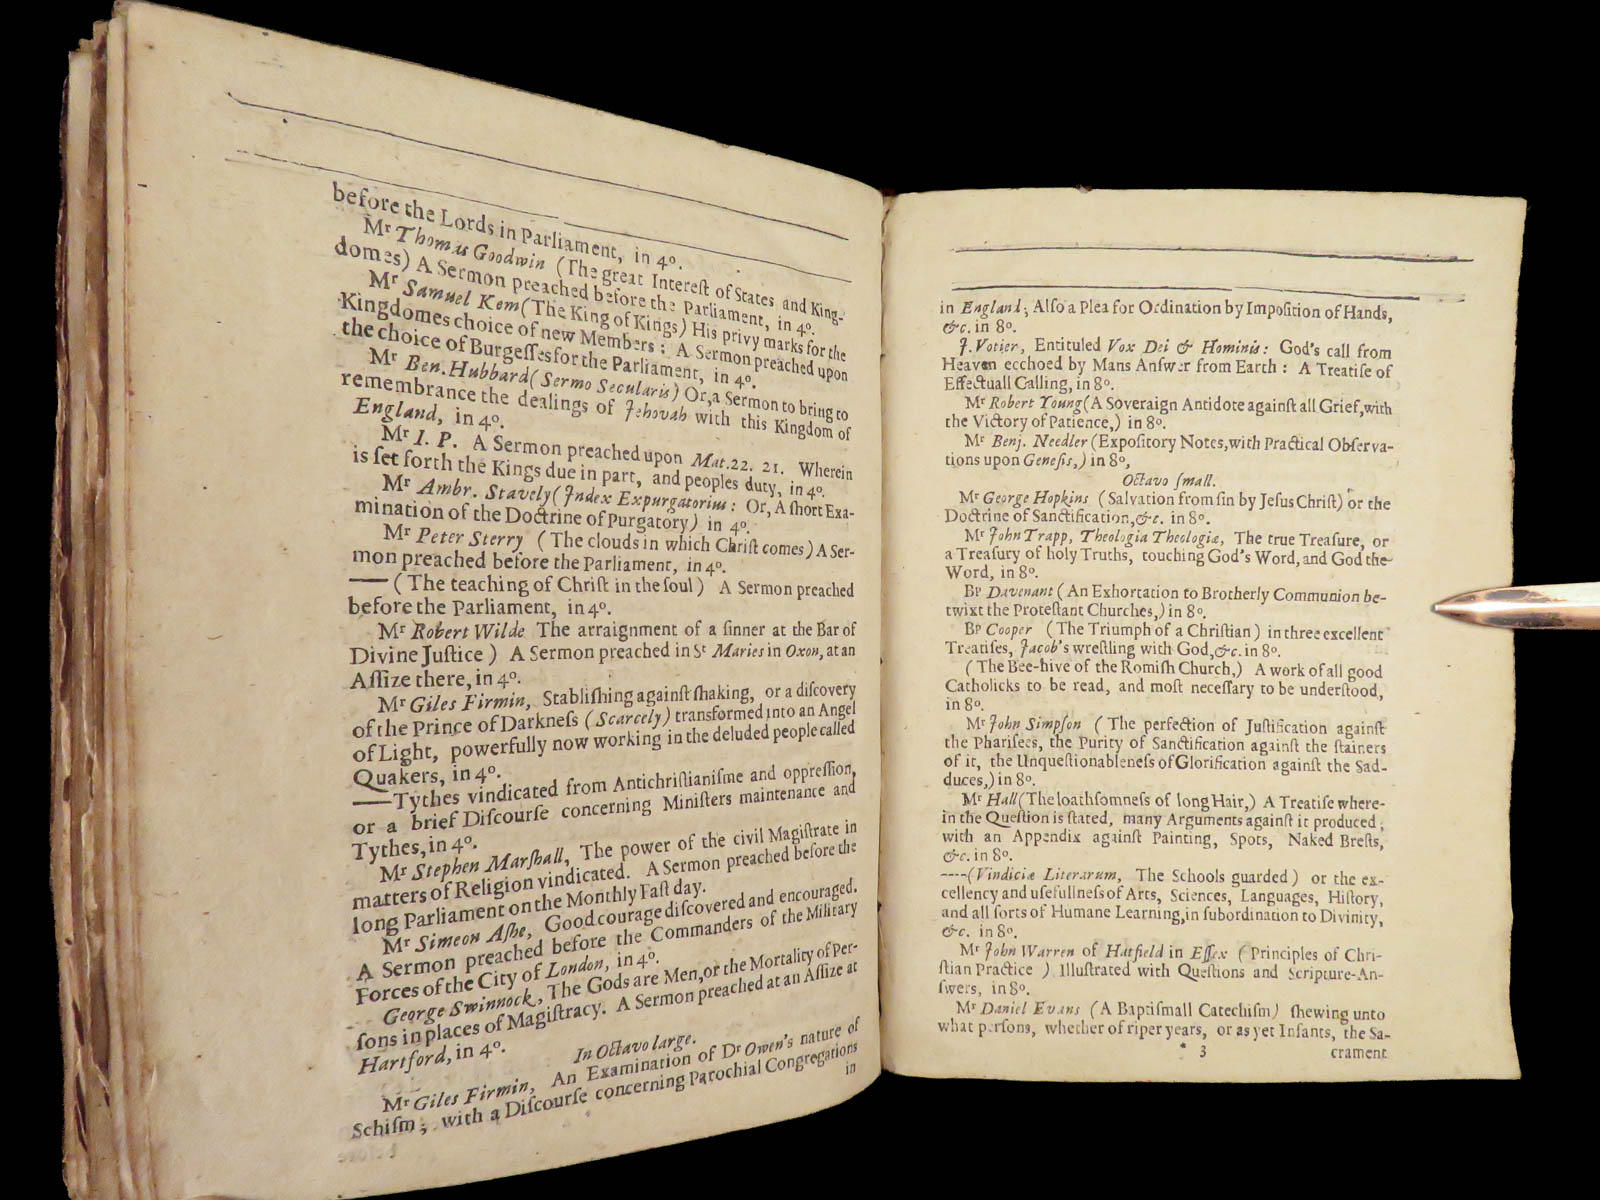 before the Lords in Parliament, in 4º.
Mr Thomas Goodwin (The great Intereſt of States and King-
domes) A Sermon preached before the Parliament, in 4º.
Mr Samuel Kem (The King of Kings) His privy marks for the
Kingdomes choice of new Members : A Sermon preached upon
the choice of Burgeſſes for the Parliament, in 4º.
Mr Ben. Hubbard (Sermo Secularis) Or, a Sermon to bring to
remembrance the dealings of Jehovah with this Kingdom of
England, in 4º.
Mr I. P. A Sermon preached upon Mat. 22. 21. Wherein
is ſet forth the Kings due in part, and peoples duty, in 4º.
Mr Ambr. Stavely (Index Expurgatorius : Or, A ſhort Exa-
mination of the Doctrine of Purgatory) in 4º.
Mr Peter Sterry (The clouds in which Chriſt comes) A Ser-
mon preached before the Parliament, in 4º.
—— (The teaching of Chriſt in the ſoul) A Sermon preached
before the Parliament, in 4º.
Mr Robert Wilde The arraignment of a ſinner at the Bar of
Divine Juſtice) A Sermon preached in St Maries in Oxon, at an
Aſſize there, in 4º.
Mr Giles Firmin, Stabliſhing againſt ſhaking, or a diſcovery
of the Prince of Darkneſs (Scarcely) transformed into an Angel
of Light, powerfully now working in the deluded people called
Quakers, in 4º.
——Tythes vindicated from Antichriſtianiſme and oppreſſion,
or a brief Diſcourſe concerning Miniſters maintenance and
Tythes, in 4º.
Mr Stephen Marſhall, The power of the civil Magiſtrate in
matters of Religion vindicated. A Sermon preached before the
long Parliament on the Monthly Faſt day.
Mr Simeon Aſhe, Good courage diſcovered and encouraged.
A Sermon preached before the Commanders of the Military
Forces of the City of London, in 4º.
George Swinnock, The Gods are Men, or the Mortality of Per-
ſons in places of Magiſtracy. A Sermon preached at an Aſſize at
Hartford, in 4º.
In Octavo large.
Mr Giles Firmin, An Examination of Dr Owen's nature of
Schiſm ; with a Diſcourſe concerning Parochial Congregations
in
in England ; Alſo a Plea for Ordination by Impoſition of Hands,
&c. in 8º.
J. Votier, Entituled Vox Dei & Hominis : God's call from
Heaven ecchoed by Mans Anſwer from Earth : A Treatiſe of
Effectuall Calling, in 8º.
Mr Robert Young (A Soveraign Antidote againſt all Grief, with
the Victory of Patience,) in 8º.
Mr Benj. Needler (Expoſitory Notes, with Practical Obſerva-
tions upon Geneſis,) in 8º,
Octavo ſmall.
Mr George Hopkins (Salvation from ſin by Jeſus Chriſt) or the
Doctrine of Sanctification, &c. in 8º.
Mr John Trapp, Theologia Theologiæ, The true Treaſure, or
a Treaſury of holy Truths, touching God's Word, and God the
Word, in 8º.
Bp Davenant (An Exhortation to Brotherly Communion be-
twixt the Proteſtant Churches,) in 8º.
Bp Cooper (The Triumph of a Chriſtian) in three excellent
Treatiſes, Jacob's wreſtling with God, &c. in 8º.
(The Bee-hive of the Romiſh Church,) A work of all good
Catholicks to be read, and moſt neceſſary to be underſtood,
in 8º.
Mr John Simpſon (The perfection of Juſtification againſt
the Phariſees, the Purity of Sanctification againſt the ſtainers
of it, the Unqueſtionableneſs of Glorification againſt the Sad-
duces,) in 8º.
Mr Hall (The loathſomneſs of long Hair,) A Treatiſe where-
in the Queſtion is ſtated, many Arguments againſt it produced ;
with an Appendix againſt Painting, Spots, Naked Breſts,
&c. in 8º.
----(Vindiciæ Literarum, The Schools guarded) or the ex-
cellency and uſefullneſs of Arts, Sciences, Languages, Hiſtory,
and all ſorts of Humane Learning, in ſubordination to Divinity,
&c. in 8º.
Mr John Warren of Hatfield in Eſſex (Principles of Chri-
ſtian Practice ) Illuſtrated with Queſtions and Scripture-An-
ſwers, in 8º.
Mr Daniel Evans (A Baptiſmall Catechiſm) ſhewing unto
what perſons, whether of riper years, or as yet Infants, the Sa-
* 3 crament